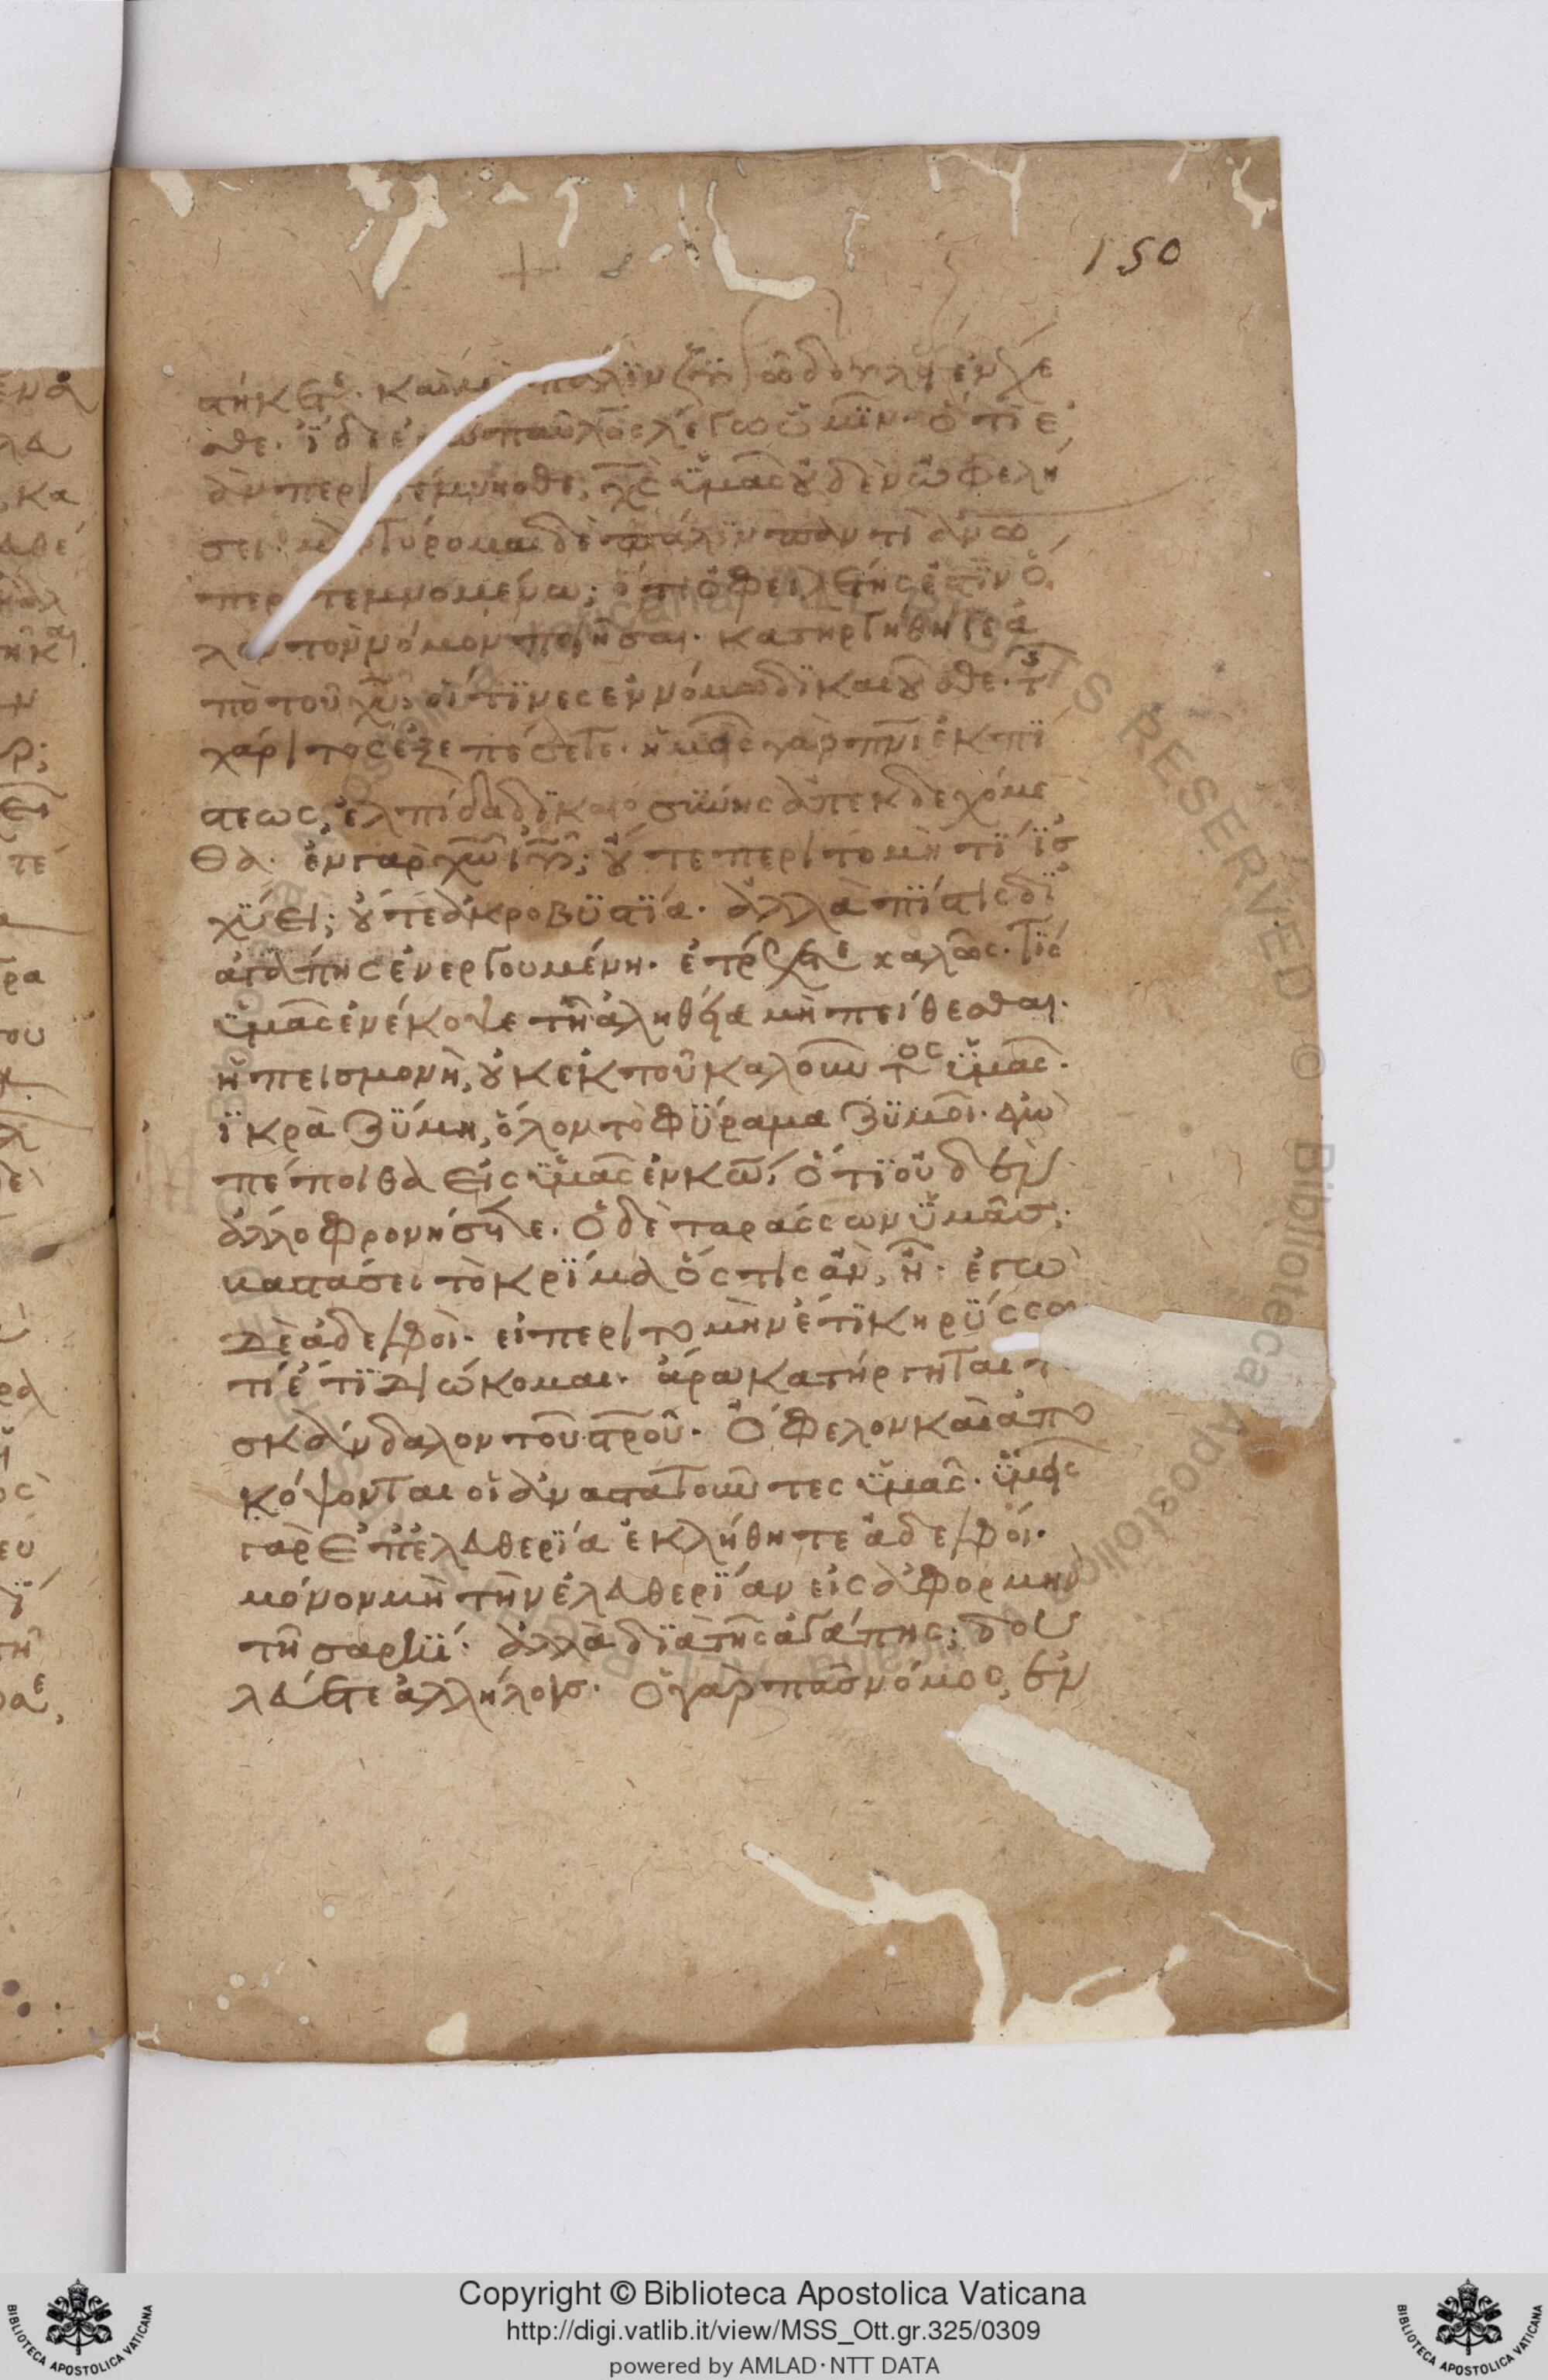 150
στήκετε· καὶ μὴ πάλϊν ζυγῶ δουλεί ενέχε
σθε· ἴδε ἐγὼ παῦλος λέγω ὑμῖν· ὅτι ἐ
ὰν περιτέμνησθε, χ̅ς̅ ὑμᾶς οὐδὲν ὠφελή
σει· μαρτύρομαι δὲ πάλϊν παντὶ ἀν̅ω̅
περιτεμνομένω; ὅτι ὀφειλέτης ἐστῒν ὅ
λον τὸν νόμον ποιῆσαι· κατηργήθητε ἀ
πὸ τοῦ χ̅υ̅, οἵτϊνες εν νόμω δϊκαιοῦσθε· τ
χάριτος ἐξεπέσετε· ἡμεῖς γὰρ π̅ν̅ι̅ ἐκ πί
στεως, ἐλπίδα δϊκαιοσύνης ἀπεκδεχόμε
θα· ἐν γὰρ χ̅ω̅ ι̅υ̅; οὔτε περιτομὴ τῒ ἰσ
χύει; οὔτε ἀκροβϋστΐα· ἀλλὰ πΐστις δϊ
ἀγάπης ἐνεργουμένη· ἐτρέχετε καλῶς· τίς
ὑμᾶς ἐνέκοψε τῆ ἀληθεία μὴ πείθεσθαι·
ἡ πεισμονὴ, οὐκ εκ τοῦ καλοῦντος ὑμᾶς·
ϊκρὰ ζύμη, ὅλον τὸ φύραμα ζϋμοῖ· ἐγὼ
πέποιθα εἰς ὑμᾶς ἐν κ̅ω̅, ὅτϊ οὐδὲν
ἄλλο φρονήσητε· Ὁ δὲ ταράσσων ὑμᾶς;
βαστάσει τὸ κρΐμα ὅστις ἂν, ῆ· ἐγὼ
δὲ ἀδελφοὶ· εἰ περιτομὴν ἔτϊ κηρύσσω
τί ἔτϊ διώκομαι· ἄρα κατήργηται τ
σκάνδαλον τοῦ σ̅τ̅ρ̅ο̅ῦ· Ὄφελον καὶ ἀπο
κόψονται οἱ ἀναστατοῦντες ὑμᾶς· ὑμεῖς
γὰρ ἐπ' ἐλευθερία ἐκλήθητε ἀδελφοί·
μόνον μὴ τὴν ἐλευθερΐαν εἰς ἀφορμὴν
τῆ σαρκΐ· ἀλλὰ δϊὰ τῆς ἀγάπης; δου
λεύετε ἀλλήλοις· Ὁ γὰρ πᾶς νόμος, ἐν
Copyright © Biblioteca Apostolica Vaticana
http://digi.vatlib.it/view/MSS_Ott.gr.325/0309
powered by AMLAD·NTT DATA